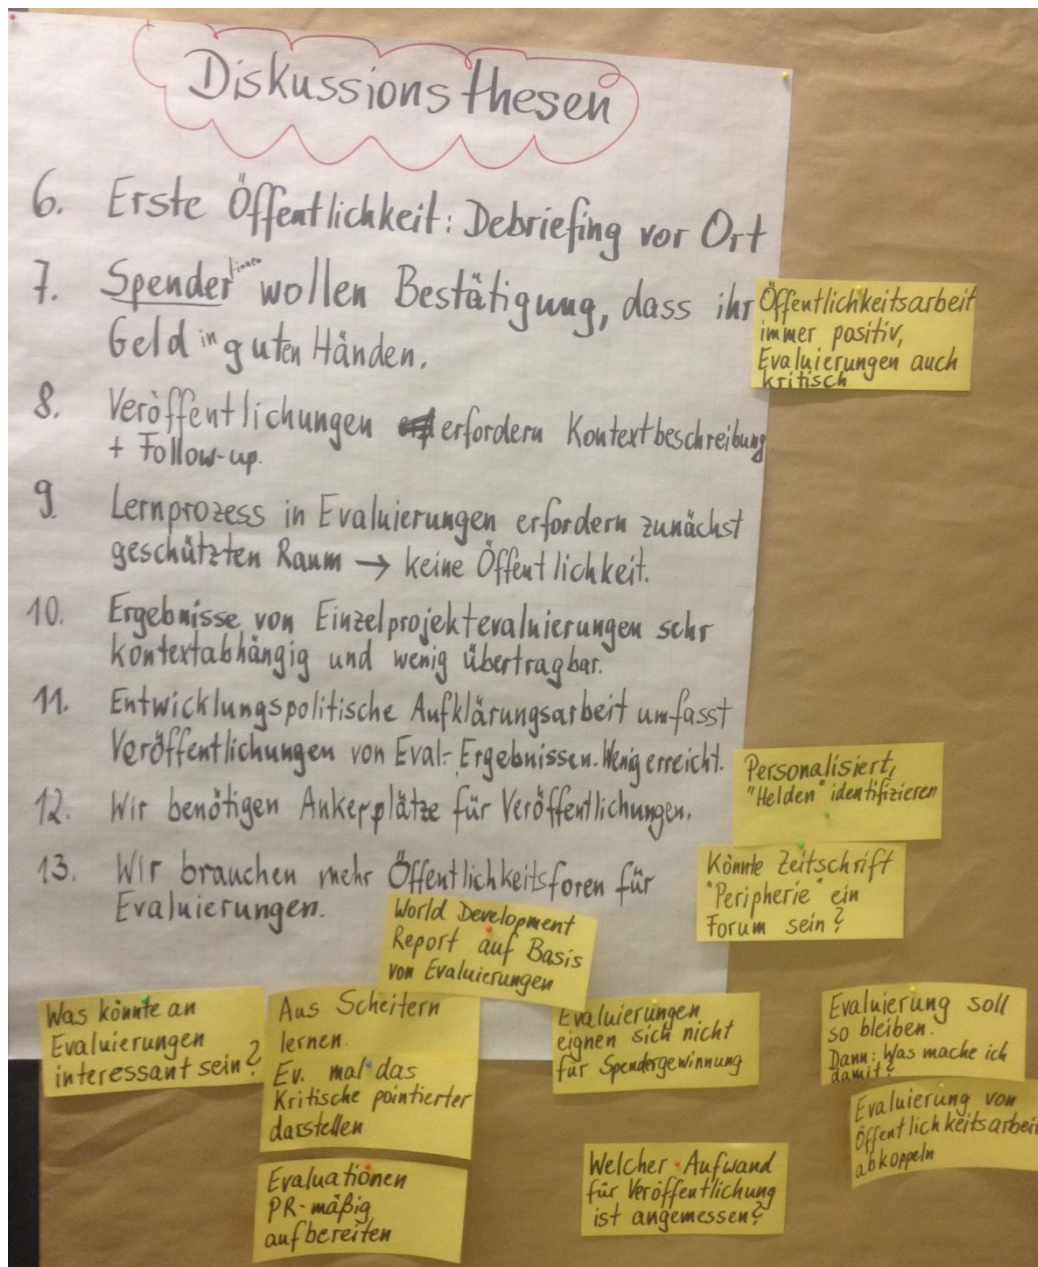 Diskussionsthesen
6. Erste Öffentlichkeit: Debriefing vor Ort
7. Spender*innen wollen Bestätigung, dass ihr
Geld in guten Händen.
8. Veröffentlichungen erfordern Kontextbeschreibung
+ Follow-up.
9. Lernprozess in Evaluierungen erfordern zunächst
geschützten Raum → keine Öffentlichkeit.
10. Ergebnisse von Einzelprojektevaluierungen sehr
kontextabhängig und wenig übertragbar.
11. Entwicklungspolitische Aufklärungsarbeit umfasst
Veröffentlichungen von Eval.-Ergebnissen. Wenig erreicht.
12. Wir benötigen Ankerplätze für Veröffentlichungen.
13. Wir brauchen mehr Öffentlichkeitsforen für
Evaluierungen.
Öffentlichkeitsarbeit
immer positiv,
Evaluierungen auch
kritisch
Personalisiert,
"Helden" identifizieren
Könnte Zeitschrift
"Peripherie" ein
Forum sein?
World Development
Report auf Basis
von Evaluierungen
Was könnte an
Evaluierungen
interessant sein?
Aus Scheitern
lernen.
Ev. mal das
Kritische pointierter
darstellen
Evaluationen
PR-mäßig
aufbereiten
Evaluierungen
eignen sich nicht
für Spendergewinnung
Welcher Aufwand
für Veröffentlichung
ist angemessen?
Evaluierung soll
so bleiben.
Dann: Was mache ich
damit?
Evaluierung von
Öffentlichkeitsarbeit
abkoppeln